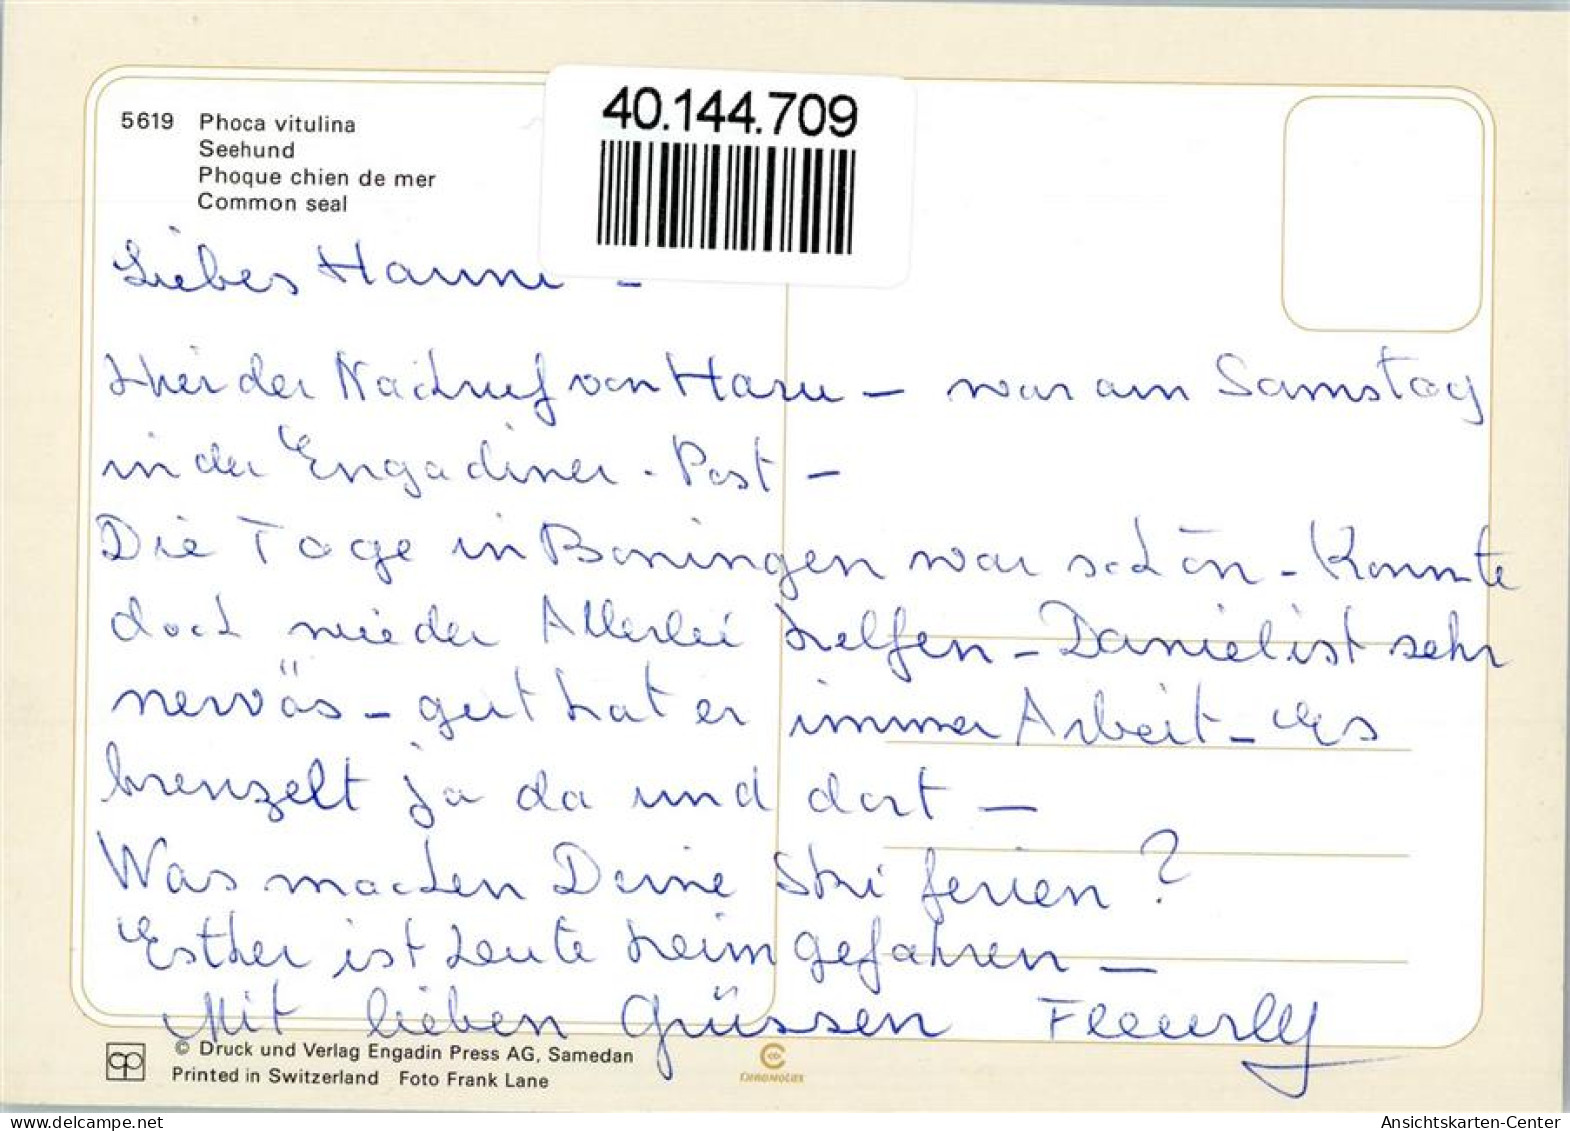 40.144.709
5619 Phoca vitulina
Seehund
Phoque chien de mer
Common seal
Liebes Hanni -
Hier der Nachruf von Hans - war am Samstag
in der Engadiner - Post -
Die Tage in Boningen war schön - Konnte
doch wieder Allerlei helfen - Daniel ist sehr
nervös - gut hat er immer Arbeit - Es
brenzelt ja da und dort -
Was machen Deine Skiferien ?
Esther ist heute heimgefahren -
Mit lieben Grüssen Fleurly
© Druck und Verlag Engadin Press AG, Samedan
Printed in Switzerland Foto Frank Lane
CHROMOLUX
delcampe.net
Ansichtskarten-Center